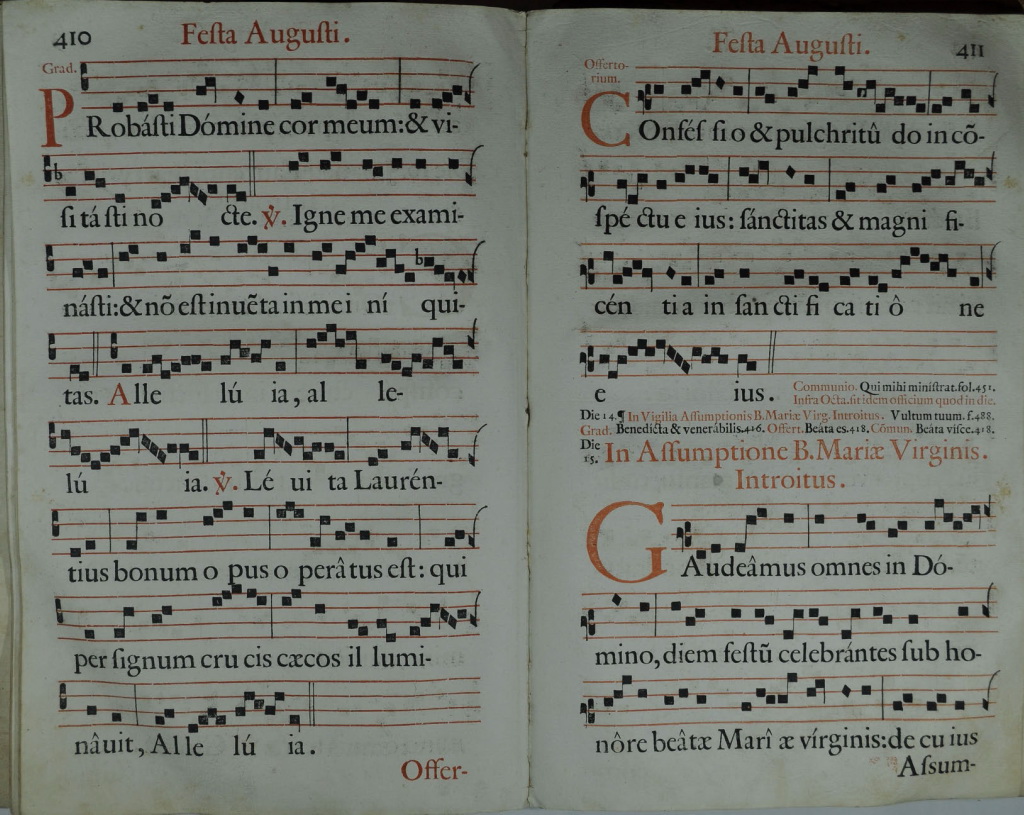 410 Feſta Auguſti.
Grad.
PRobáſti Dómine cor meum: & vi-
ſi tá ſti no cte. ℣. Igne me exami-
náſti: & nõ eſt inuẽta in me i ní qui-
tas. Alle lú ia, al le-
lú ia. ℣. Lé ui ta Laurén-
tius bonum o pus o perâtus eſt: qui
per ſignum cru cis cæcos il lumi-
nâuit, Alle lú ia.
Offer-
Feſta Auguſti. 411
Offerto-
rium.
COnféſ ſi o & pulchritû do in cõ-
ſpé ctu e ius: ſánctitas & magni fi-
cén ti a in ſan cti fi ca ti ô ne
e ius.
Communio. Qui mihi miniſtrat. fol. 451.
Infra Octa. fit idem officium quod in die.
Die 14. ¶ In Vigilia Aſſumptionis B. Mariæ Virg. Introitus. Vultum tuum. f. 488.
Grad. Benedicta & venerábilis. 416. Offert. Beáta es. 418. Cõmun. Beáta viſce. 418.
Die 15. In Aſſumptione B. Mariæ Virginis.
Introitus.
GAudeâmus omnes in Dó-
mino, diem feſtũ celebrántes ſub ho-
nôre beâtæ Marî æ vírginis: de cu ius
Aſsum-